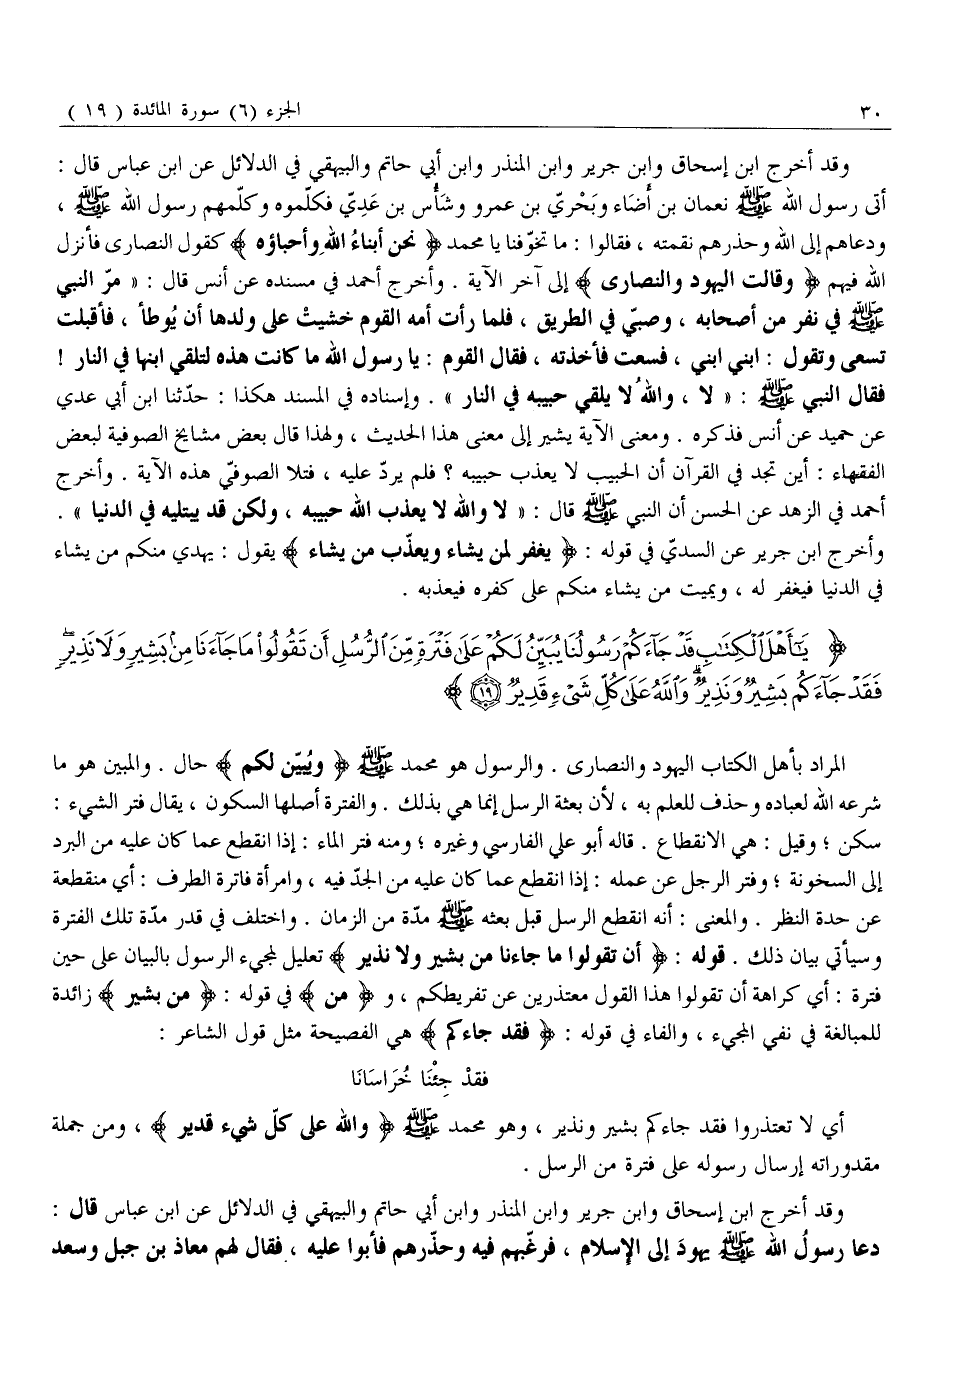 ٣٠ الجزء (٦) سورة المائدة ( ١٩ )
وقد أخرج ابن إسحاق وابن جرير وابن المنذر وابن أبي حاتم والبيهقي في الدلائل عن ابن عباس قال :
أتى رسول الله ﷺ نعمان بن أَضَاء وبَحْريّ بن عمرو وشَأْس بن عَدِيّ فكلّموه وكلّمهم رسول الله ﷺ ،
ودعاهم إلى الله وحذرهم نقمته ، فقالوا : ما تخوّفنا يا محمد ﴿ نحن أبناءُ اللهِ وأحباؤه ﴾ كقول النصارى فأنزل
الله فيهم ﴿ وقالت اليهود والنصارى ﴾ إلى آخر الآية . وأخرج أحمد في مسنده عن أنس قال : « مرّ النبي
ﷺ في نفر من أصحابه ، وصبيّ في الطريق ، فلما رأت أمه القوم خشيتْ على ولدها أن يُوطأ ، فأقبلت
تسعى وتقول : ابني ابني ، فسعت فأخذته ، فقال القوم : يا رسول الله ما كانت هذه لتلقي ابنها في النار !
فقال النبي ﷺ : « لا ، واللهُ لا يلقي حبيبه في النار » . وإسناده في المسند هكذا : حدّثنا ابن أبي عدي
عن حميد عن أنس فذكره . ومعنى الآية يشير إلى معنى هذا الحديث ، ولهذا قال بعض مشايخ الصوفية لبعض
الفقهاء : أين تجد في القرآن أن الحبيب لا يعذب حبيبه ؟ فلم يردّ عليه ، فتلا الصوفيّ هذه الآية . وأخرج
أحمد في الزهد عن الحسن أن النبي ﷺ قال : « لا والله لا يعذب الله حبيبه ، ولكن قد يبتليه في الدنيا » .
وأخرج ابن جرير عن السديّ في قوله : ﴿ يغفر لمن يشاء ويعذّب من يشاء ﴾ يقول : يهدي منكم من يشاء
في الدنيا فيغفر له ، ويميت من يشاء منكم على كفره فيعذبه .
﴿ يَٰٓأَهْلَ ٱلْكِتَٰبِ قَدْ جَآءَكُمْ رَسُولُنَا يُبَيِّنُ لَكُمْ عَلَىٰ فَتْرَةٍ مِّنَ ٱلرُّسُلِ أَن تَقُولُوا۟ مَا جَآءَنَا مِنۢ بَشِيرٍ وَلَا نَذِيرٍ ۖ
فَقَدْ جَآءَكُم بَشِيرٌ وَنَذِيرٌ ۗ وَٱللَّهُ عَلَىٰ كُلِّ شَىْءٍ قَدِيرٌ ١٩ ﴾
المراد بأهل الكتاب اليهود والنصارى . والرسول هو محمد ﷺ ﴿ ويُبيّن لكم ﴾ حال . والمبين هو ما
شرعه الله لعباده وحذف للعلم به ، لأن بعثة الرسل إنما هي بذلك . والفترة أصلها السكون ، يقال فتر الشيء :
سكن ؛ وقيل : هي الانقطاع . قاله أبو علي الفارسي وغيره ؛ ومنه فتر الماء : إذا انقطع عما كان عليه من البرد
إلى السخونة ؛ وفتر الرجل عن عمله : إذا انقطع عما كان عليه من الجدّ فيه ، وامرأة فاترة الطرف : أي منقطعة
عن حدة النظر . والمعنى : أنه انقطع الرسل قبل بعثه ﷺ مدّة من الزمان . واختلف في قدر مدّة تلك الفترة
وسيأتي بيان ذلك . قوله : ﴿ أن تقولوا ما جاءنا من بشير ولا نذير ﴾ تعليل لمجيء الرسول بالبيان على حين
فترة : أي كراهة أن تقولوا هذا القول معتذرين عن تفريطكم ، و ﴿ من ﴾ في قوله : ﴿ من بشير ﴾ زائدة
للمبالغة في نفي المجيء ، والفاء في قوله : ﴿ فقد جاءكم ﴾ هي الفصيحة مثل قول الشاعر :
فقدْ جِئْنَا خُرَاسَانَا
أي لا تعتذروا فقد جاءكم بشير ونذير ، وهو محمد ﷺ ﴿ والله على كلّ شيء قدير ﴾ ، ومن جملة
مقدوراته إرسال رسوله على فترة من الرسل .
وقد أخرج ابن إسحاق وابن جرير وابن المنذر وابن أبي حاتم والبيهقي في الدلائل عن ابن عباس قال :
دعا رسولُ الله ﷺ يهودَ إلى الإسلام ، فرغّبهم فيه وحذّرهم فأبوا عليه ، فقال لهم معاذ بن جبل وسعد